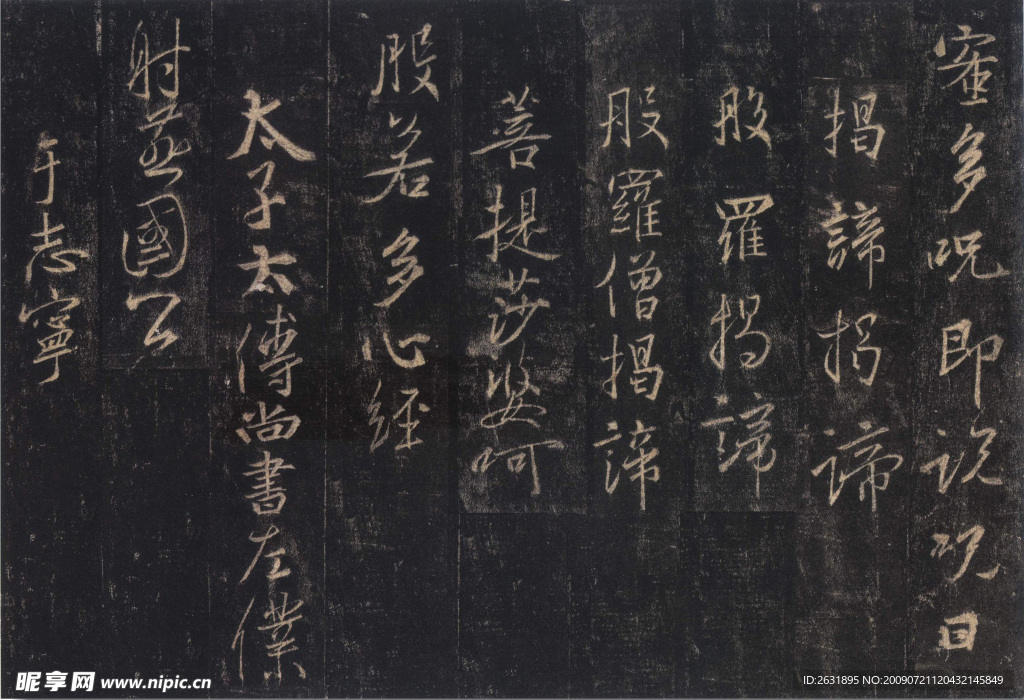 蜜多咒即说咒曰
揭諦揭諦
般羅揭諦
般羅僧揭諦
菩提莎婆呵
般若多心經
太子太傅尚書左僕
射燕國公
于志寧
昵享网 www.nipic.cn
ID:2631895 NO:20090721120432145849